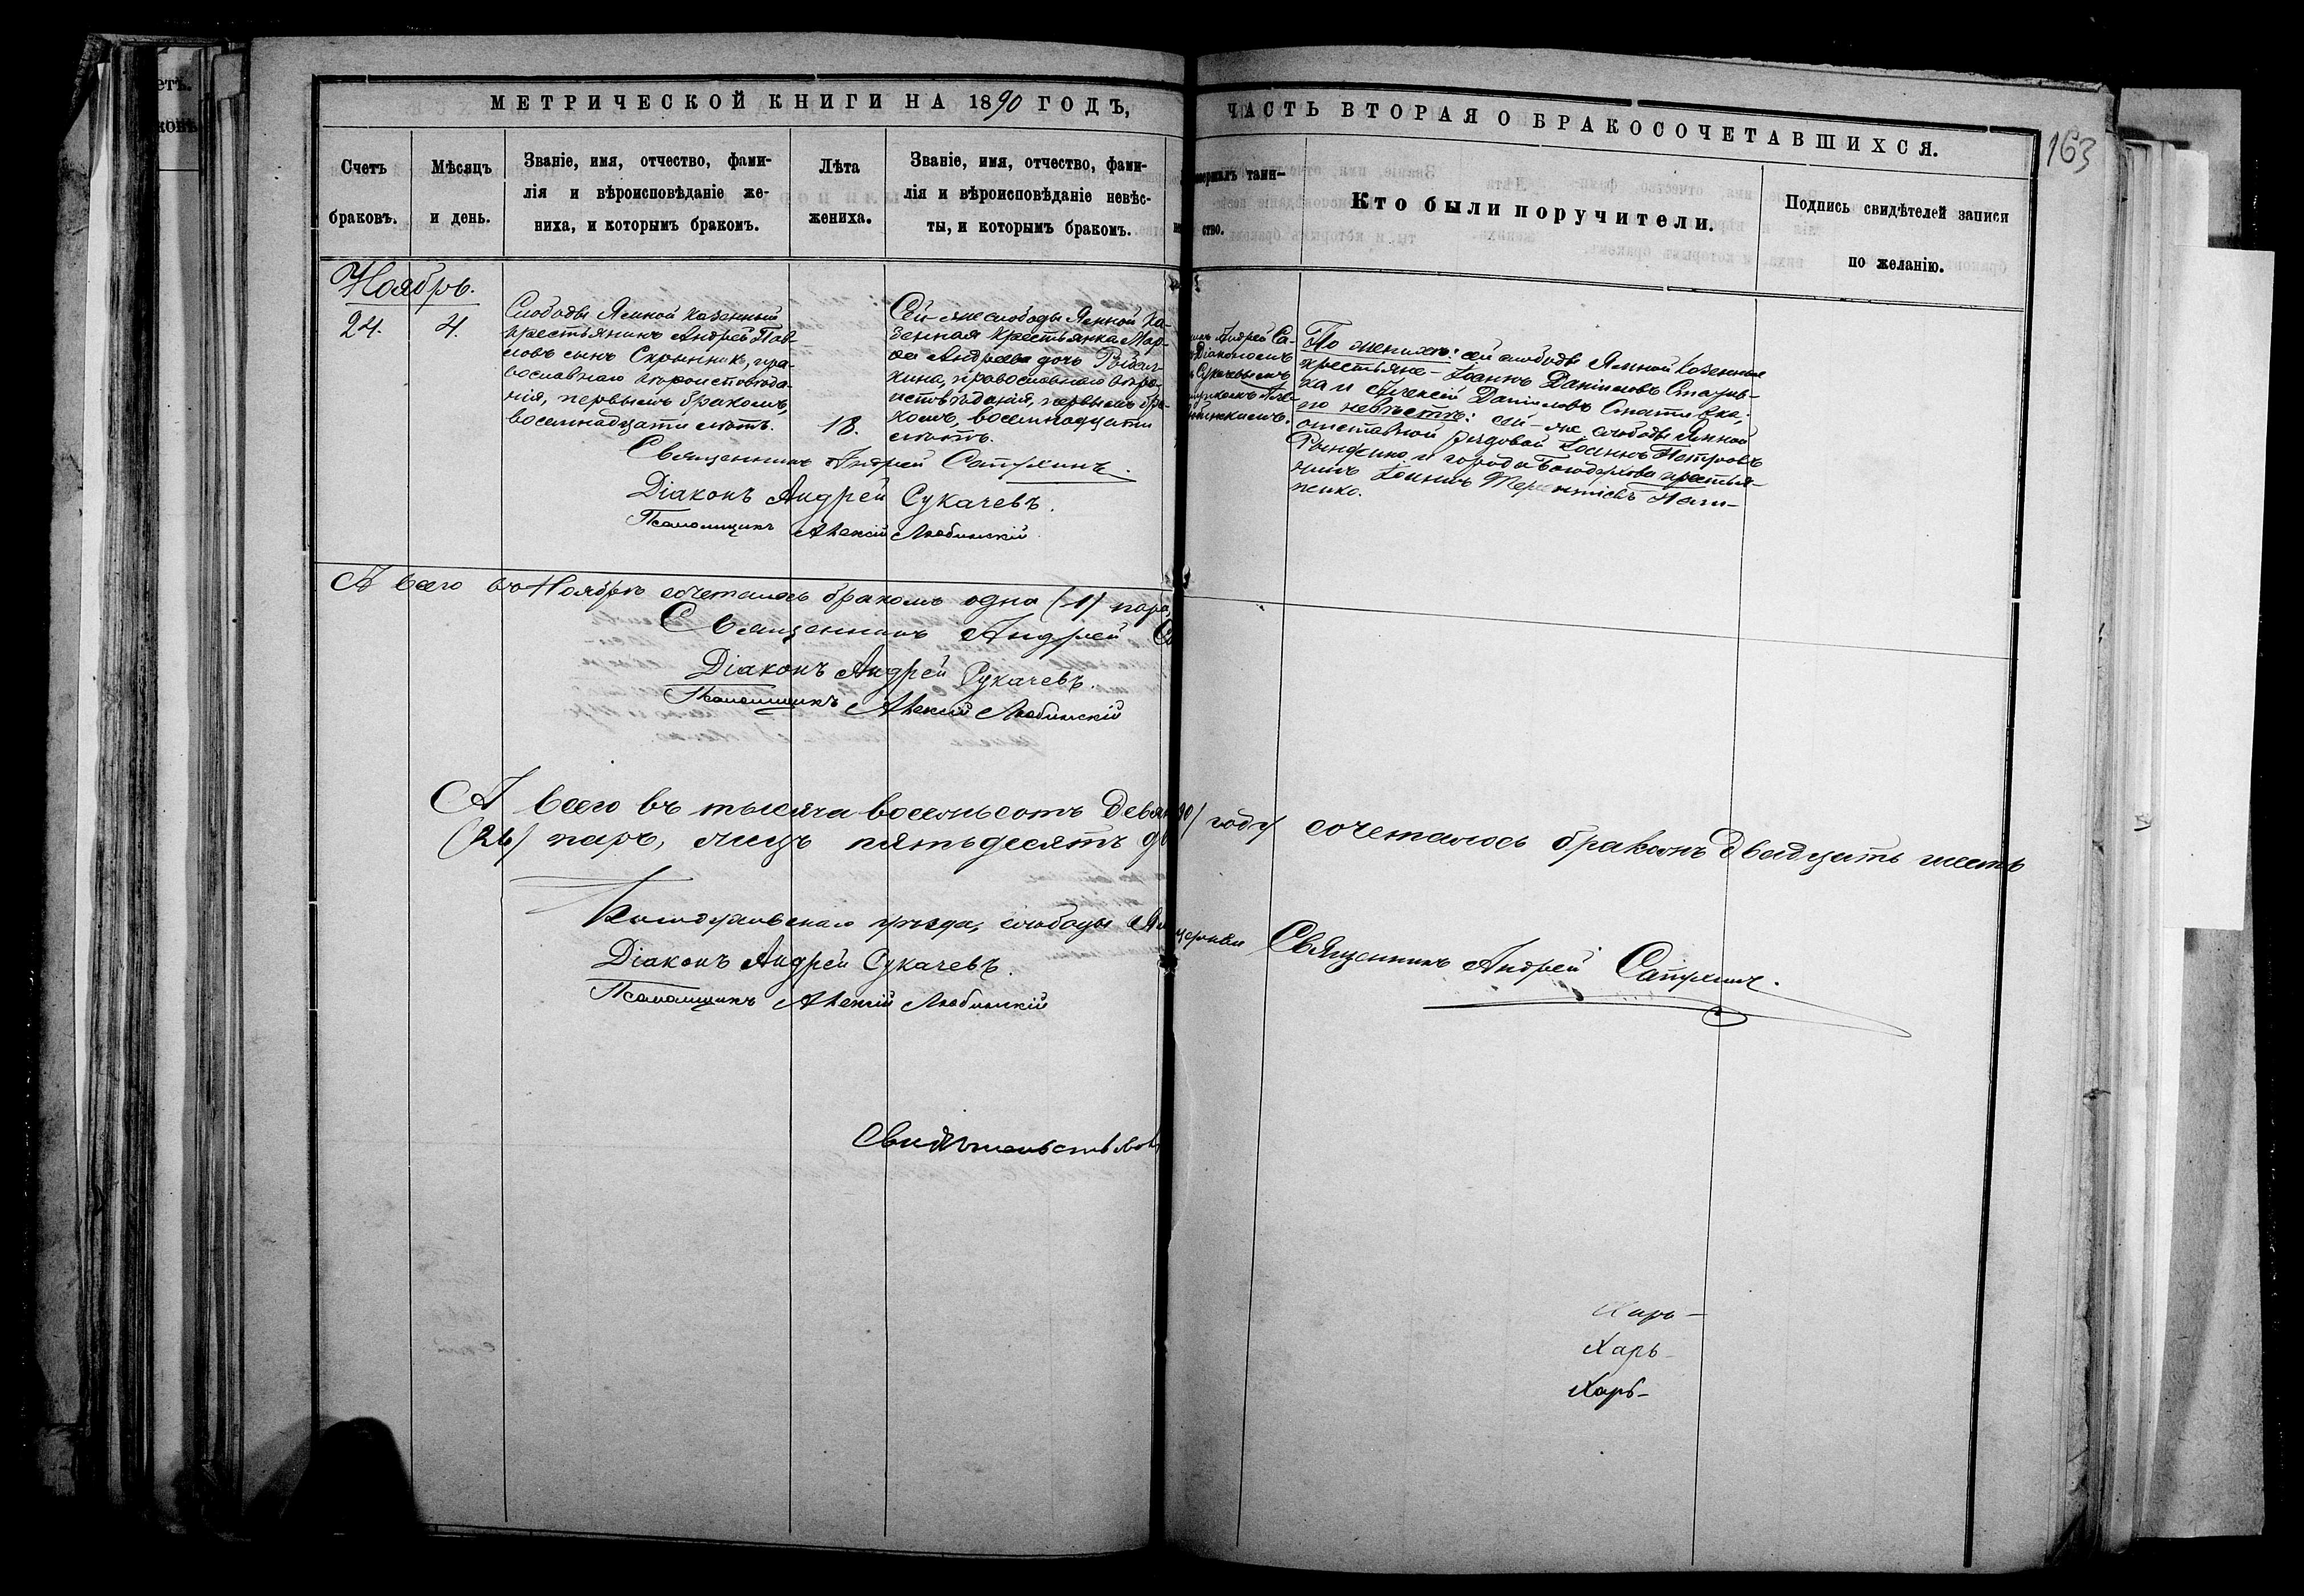 МЕТРИЧЕСКОЙ КНИГИ НА 1890 ГОДЪ,
ЧАСТЬ ВТОРАЯ О БРАКОСОЧЕТАВШИХСЯ.
163
Счетъ
браковъ.
Мѣсяцъ
и день.
Званіе, имя, отчество, фами-
лія и вѣроисповѣданіе же-
ниха, и которымъ бракомъ.
Лѣта
жениха.
Званіе, имя, отчество, фами-
лія и вѣроисповѣданіе невѣс-
ты, и которымъ бракомъ.
таин-
ство.
Кто были поручители.
Подпись свидѣтелей записи
по желанію.
Ноябрь.
24.
4.
Слободы Ямной казенный
крестьянинъ Андрей Пав-
ловъ сынъ Скрынникъ, пра-
вославнаго вѣроисповѣда-
нія, первымъ бракомъ,
восемнадцати лѣтъ.
18.
Сей-же слободы Ямной ка-
зенная крестьянка Мар-
Андреева дочь
кина, православнаго вѣро-
исповѣданія, первымъ бра-
комъ, восемнадцати
лѣтъ.
Андрей Са-
Діакономъ
Сукачевымъ
По женихѣ: сей слободы Ямной казенные
крестьяне - Іоаннъ Даніиловъ
ка и Алексій Даніиловъ
по невѣстѣ: сей-же слободы Ямной
отставной рядовой Іоаннъ Петровъ
и города Богодухова крестья-
нинъ Іоаннъ Терентіевъ
пенко.
Священникъ Андрей Сапухинъ.
Діаконъ Андрей Сукачевъ.
Псаломщикъ Алексій Любинскій
А всего въ Ноябрѣ сочеталось бракомъ одна (1) пара,
Священникъ Андрей Са
Діаконъ Андрей Сукачевъ.
Псаломщикъ Алексій Любинскій
А всего въ тысяча восемьсотъ девян 90) году сочеталось бракомъ двадцать шесть
(26) паръ, лицъ пятьдесятъ дв
Богодуховскаго уѣзда, слободы Ям церкви Священникъ Андрей Сапухинъ.
Діаконъ Андрей Сукачевъ.
Псаломщикъ Алексій Любинскій
Свидѣтельствов
Харь-
Харь-
Харь-